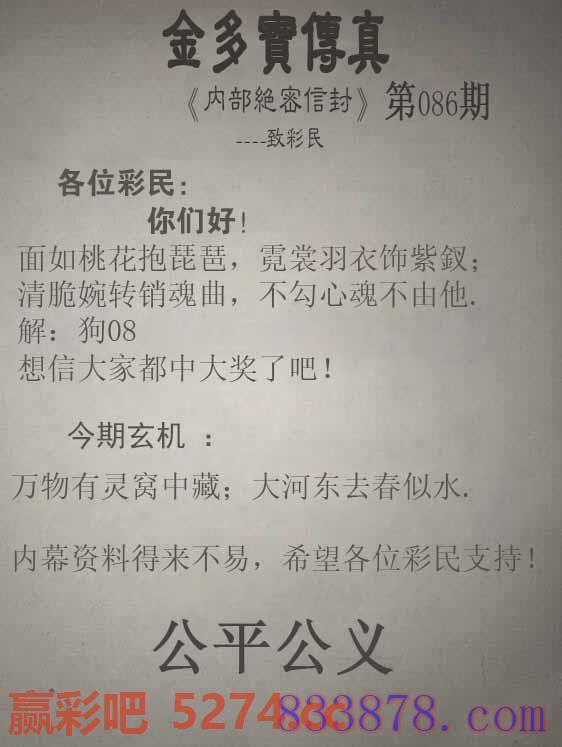 金多寳傳真
《内部絶密信封》第086期
----致彩民
各位彩民:
你们好!
面如桃花抱琵琶，霓裳羽衣饰紫釵;
清脆婉转销魂曲，不勾心魂不由他.
解：狗08
想信大家都中大奖了吧!
今期玄机 ：
万物有灵窝中藏；大河东去春似水.
内幕资料得来不易，希望各位彩民支持!
公平公义
赢彩吧 5274.cc
833878.com